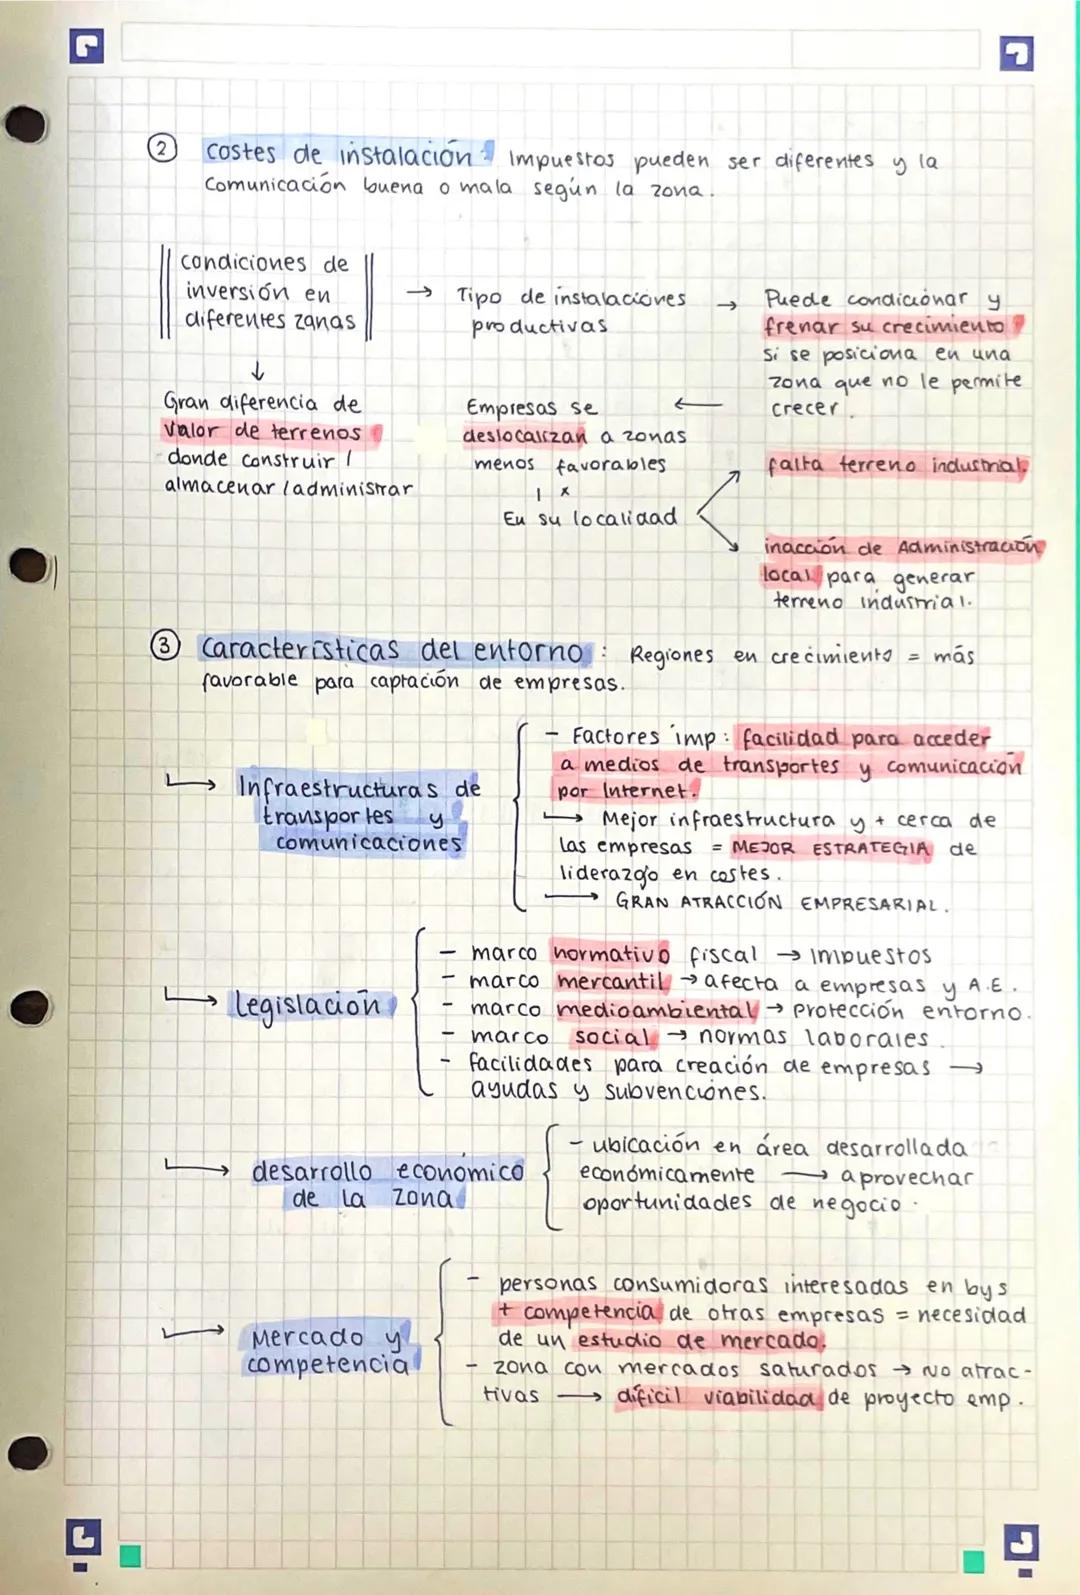 ② costes de instalación: Impuestos pueden ser diferentes y la
Comunicación buena o mala según la zona.
condiciones de
inversión en
diferentes zonas
→ Tipo de instalaciones
productivas
→ Puede condicionar y
frenar su crecimiento
si se posiciona en una
zona que no le permite
crecer.
↓
Gran diferencia de
valor de terrenos
donde construir /
almacenar / administrar
←
Empresas se
deslocalizan a zonas
menos favorables
| x
En su localidad
falta terreno industrial.
inacción de Administración
local para generar
terreno industrial.
③ Características del entorno: Regiones en crecimiento = más
favorable para captación de empresas.
↳ Infraestructuras de
transportes y
comunicaciones
- Factores imp: facilidad para acceder
a medios de transportes y comunicación
por Internet.
↳ Mejor infraestructura y + cerca de
las empresas = MEJOR ESTRATEGIA de
liderazgo en costes.
↳ GRAN ATRACCIÓN EMPRESARIAL.
↳ Legislación
- marco normativo fiscal → Impuestos
- marco mercantil → afecta a empresas y A.E.
- marco medioambiental → protección entorno.
- marco social → normas laborales.
- facilidades para creación de empresas →
ayudas y subvenciones.
↳ desarrollo económico
de la zona
- ubicación en área desarrollada
económicamente → aprovechar
oportunidades de negocio.
↳ Mercado y
competencia
- personas consumidoras interesadas en bys
+ competencia de otras empresas = necesidad
de un estudio de mercado.
- zona con mercados saturados → No atrac-
tivas → díficil viabilidad de proyecto emp.